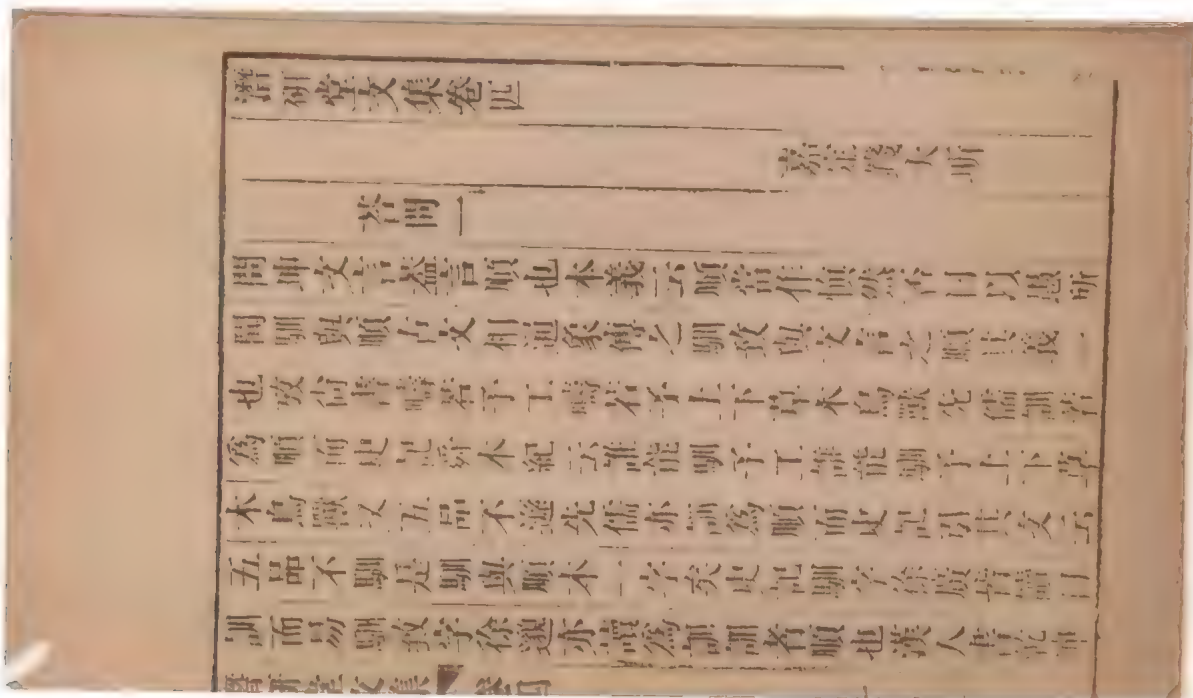 潛研堂文集卷四
嘉定錢大昕
答問一
問坤文言蓋言順也本義云順當作慎然否曰以愚所
聞馴與順古文相通象傳之馴致與文言之順其義一
也攷尚書疇若予工疇若予上下草木鳥獸先儒訓若
爲順而史記舜本紀云誰能馴予工誰能馴予上下草
木鳥獸又五品不遜先儒亦訓爲順而史記引其文云
五品不馴是馴與順本一字矣史記馴字徐廣皆讀曰
訓而易馴致字徐邈亦讀爲訓訓者順也漢人書
潛研堂文集 卷四